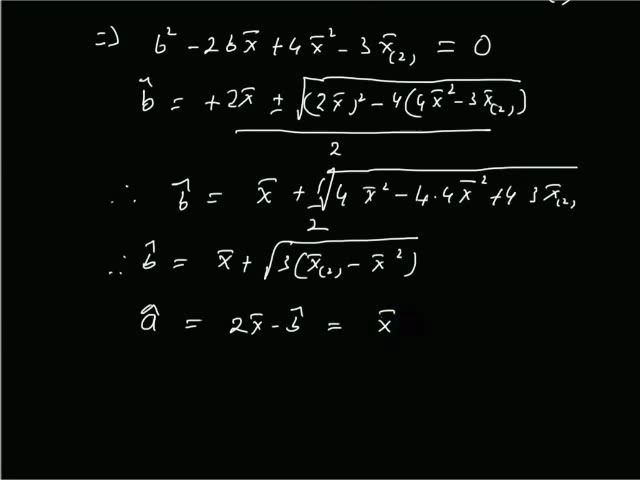 ⇒) b² - 2bx̄ + 4x̄² - 3x̄₍₂₎ = 0
b̂ = +2x̄ ± √((2x̄)² - 4(4x̄² - 3x̄₍₂₎)) / 2
∴ b̂ = x̄ + 1/2 √(4 x̄² - 4·4x̄² + 4 3x̄₍₂₎)
∴ b̂ = x̄ + √(3(x̄₍₂₎ - x̄²))
â = 2x̄ - b̂ = x̄